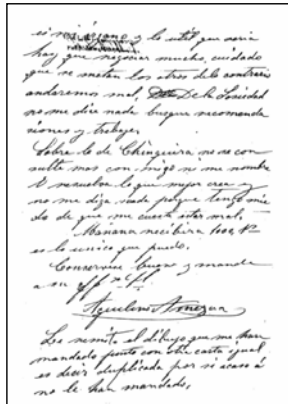 es mi órgano y lo util que seria
hay que negociar mucho, cuidado
que se metan los otros delo contrario
andaremos mal, De la Sociedad
no me dice nada busque recomenda
ciones y trabaje.
Sobre lo de Chinquira no se con
sulte mas con migo ni me nombre
V. resuelve lo que mejor crea y
no me diga nada porque tengo mie
do de que me cueste estar mal.
Mañana recibira 1000, Ptas
es lo unico que puedo.
Conserve bueno y mande
a su
Aquilino Amezua
Le remito el dibujo que me han
mandado junto con otra carta igual
es decir duplicada por si acaso á
V. no le han mandado.